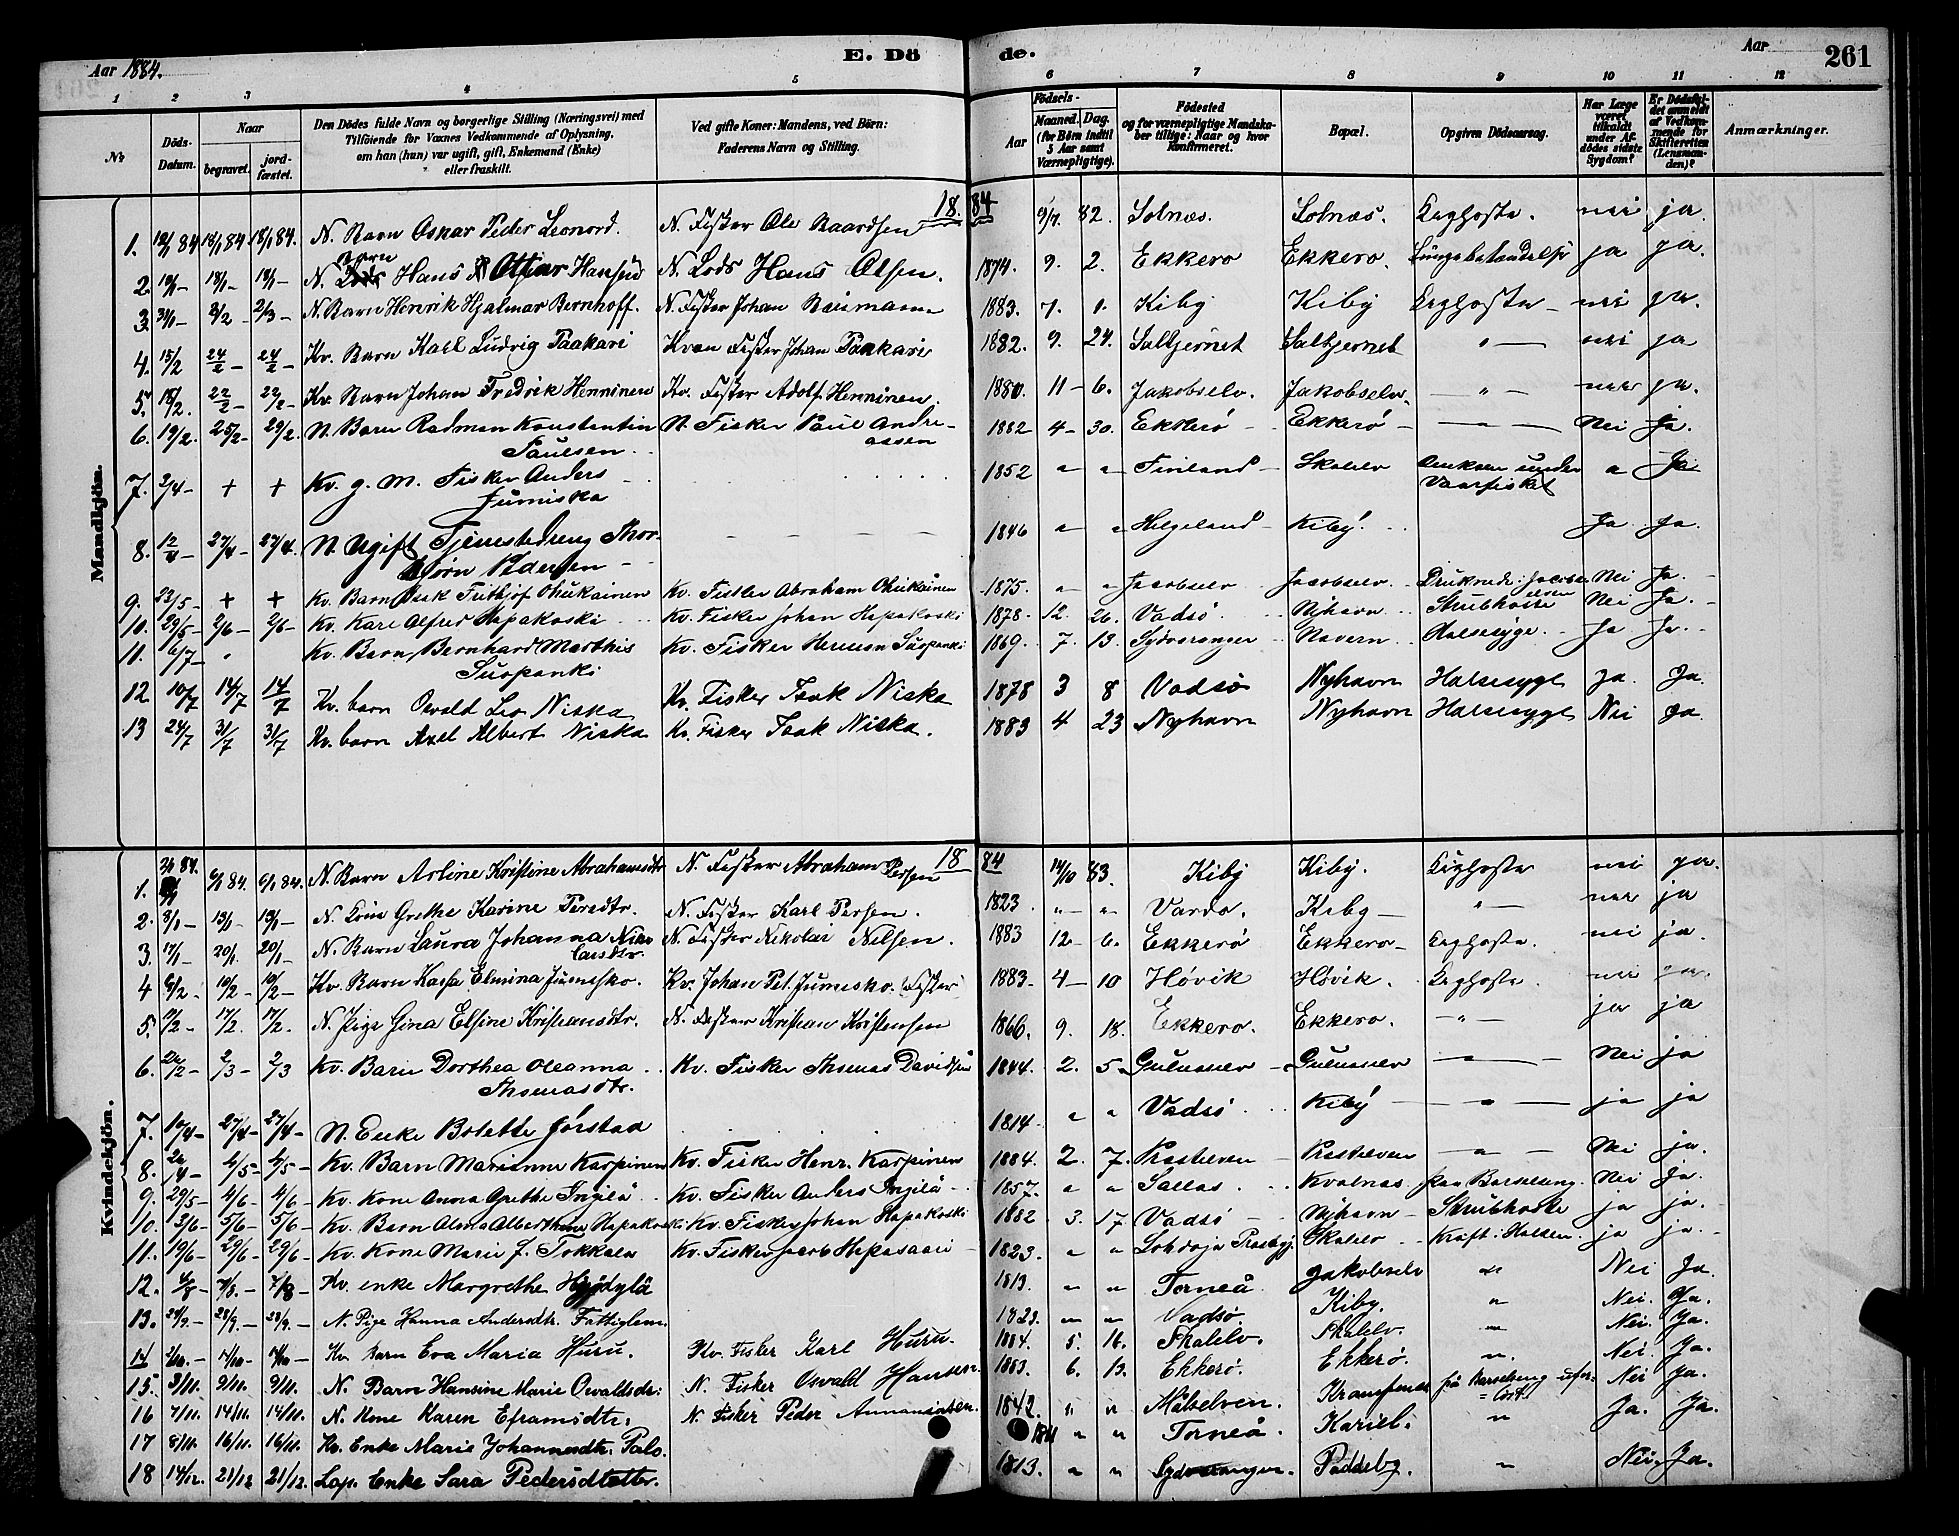 Aar 1884. E. Dö
1 2 3 4 5
№ Döds-Datum. Naar begravet. jord-fæstet. Den Dödes fulde Navn og borgerlige Stilling (Næringsvei) med Tilföiende for Vaxnes Vedkommende af Oplysning, om han (hun) var ugift, gift, Enkemand (Enke) eller fraskilt. Ved gifte Koner: Mandens, ved Börn: Faderens Navn og Stilling.
de. Aar 261
6 7 8 9 10 11 12
Aar Födsels- Maaned. Dag. (for Börn indtil 5 Aar samt Værnepligtige). Födested og for værnepligtige Mandskaber tillige: Naar og hvor konfirmeret. Bopæl. Opgiven Dödsaarsag. Har Læge været tilkaldt under Afdödes sidste Sygdom? Er Dödsfaldet anmeldt af Vedkommende for Skifteretten (Lensmanden)? Anmærkninger.
Mandkjön.
18 84
1. 84 18/1 84 18/1 84. N. Barn Oskar Peder Leonord. N. Fisker Ole Baardsen 9/7 82. Solnæs. Solnæs. Kighoste. nei ja.
2. 18/1 – N. Barn Hans Otsiar Hansen N. Lods Hans Olsen. 1874. 9. 2. Ekkerø Ekkerø. Lungebetændelse ja ja.
3. 2/2 – 2/3 – N. Barn Henrik Hjalmar Bernhoff. N. Fisker Johan Reismann 1883. 7. 1. Kiby Kiby Kighoste – nei ja.
4. 15/2 24/2 – 24/2 – Kv. Barn Karl Ludvig Paakari Kvæn Fisker Johan Paakari 1882. 9. 24. Saltjernet Saltjernet " – nei ja
5. 18/2. 22/2 – 22/2 – Kv. Barn Johan Fredrik Henninen Kv. Fisker Adolf Henninen. 1880. 11 – 6. Jakobselv. Jakobselv. – " – nei ja.
6. 19/2. 25/2 – 29/2. N. Barn Redmen Konstentin Paulsen N. Fisker Paul Andreassen 1882 4 – 30. Ekkerø – Ekkerø – Nei Ja.
7. 2/4 – + + Kv. g. M. Fisker Anders Jumiska 1852 " " Finland – Skalelv Druknen under Vaarfisket " Ja
8. 12/4 – 27/4 – 27/4. N. Ugift Tjenestedreng Thorbjørn Pedersen 1846 " " Helgeland – Kiby. Ja. Ja.
9. 23/5 – + + Kv. Barn Isak Frithjof Ohukainen Kv. Fisker Abraham Ohukainen 1875. " " Jacobselv – Jacobselv. – Druknede i Jacobselven Nei Ja. –
10. 29/5 – 2/6 – 2/6 – Kv. Karl Alfred Hapakoski Kv. Fisker Johan Hapakoski 1878. 12. 26. Vadsö Nyhavn. Strubhoste Nei Ja. –
11. 6/7 – " Kv. Barn Bernhard Matthis Suopanki Kv. Fisker Herman Suopanki 1869. 7. 13. Sydvaranger – Halsesyge. – Ja Ja. –
12 10/7 14/7 14/7 Kv. barn Osvald Leo Niska Kv. Fisker Isak Niska 1878 3 8 Vadsö Nyhavn Halsesyge Ja. Ja.
13 24/7 31/7 31/7 Kv. barn Axel Albert Niska Kv. Fisker Isak Niska. 1883 4 23 Nyhavn Nyhavn Halsesyge Nei Ja
Kvindekjön.
18 84
1. 84. 6/1 84. 6/1 84. N. Barn Arline Kristine Abrahamsdtr N. Fisker Abraham Persen 14/10 83. Kiby Kiby. Kighoste nei ja.
2. 8/1 – 13/1 – 13/1 – N. Grethe Karine Persdtr. N. Fisker Karl Persen. 1823. " – " Vardø. Kiby – " – nei ja
3. 17/1 – 20/1. 20/1 – N. Barn Laura Johanna Nikolaisdtr. N. Fisker Nikolai Nilsen. 1883 12 – 6. Ekkerö Ekkerø – Kighoste. nei ja.
4 6/2 – 10/2 – 10/2 – Kv. Barn Kaisa Elmina Jumisko. Kv. Johan Pet. Jumisko. Fisker 1883. 4 – 10 Høvik Høvik. Kighoste. nei ja.
5. 17/2. 17/2. N. Pige Gina Elsine Kristiansdtr. N. Fisker Kristian Kristensen 1866. 9. 18. Ekkerø. Ekkerø. – " – ja ja
6. 2/3 – 2/3 Kv. Barn Dorthea Oleanna Thomasdtr. Kv. Fisker Thomas Davidsen 1844. 2. 5. – " – Nei ja
7. 10/4 – 27/4 – 27/4 – N. Enke Bolette Jørstad 1814. " " Vadsö Kiby – " – ja ja
8. 4/5 – 4/5 – Kv. Barn Marianne Karpinen Kv. Fisker Henr. Karpinen 1884. 2. 7. Præstelven – Præstelven – " – Nei ja.
9. 29/5 – 4/6 – 4/6 – Kv. Kone Anna Grethe Ingilä Kv. Fisker Anders Ingilä – 1857. " " Sallas. Kvalnæs. paa Barselseng. Nei Ja.
10. 3/6 – 5/6 – 5/6 – Kv. Barn Alma Alberthine Hapakoski. Kv. Fisker Johan Hapakoski 1882 3. 17. Vadsö – Nyhavn – Strubhoste ja ja. –
11. 19/6 – 29/6 – 29/6 – Kv. Kone Marie J. Tokkola Kv. Fisker Jacob Hapasaari – 1823. " " Skalelv – Kræft i Halsen. ja ja. –
12. 4/8 – 7/8. – 7/8 – Kv. enke Margrethe 1813. " " Torneå Jakobselv " Nei Ja.
13. 24/9. – 28/9. – 28/9. – N. Pige Hanna Andersdtr. Fattiglem. 1823. " " Vadsø. Kiby. " Nei. Ja.
14 – Kv. barn Eva Maria Huru. Kv. Fisker Karl Huru. 1884. 5. 16. Skalelv. Skalelv. " Nei. Ja.
15. 3/11. 9/11. 9/11. N. Barn Hansine Marie Osvaldsdr: N. Fisker Osvald Hansen. 1883. 6. 13. Ekkerø. Ekkerø. " Nei. Ja.
16 7/11. 14/11. 14/11. N. Kone Karen Eframsdtr: N. Fisker Peder 1842. " " Målselven. på barselseng Nei Ja.
17 8/11. 16/11. 16/11. Kv. Enke Marie Johannesdtr. Palo. " " Torneå. Kariel. " Ja. Ja.
18 14/12. 21/12 21/12. Lap. Enke Sara Pedersdtatter. 1813. " " Sydvaranger. Paddeby. " Nei. Ja.